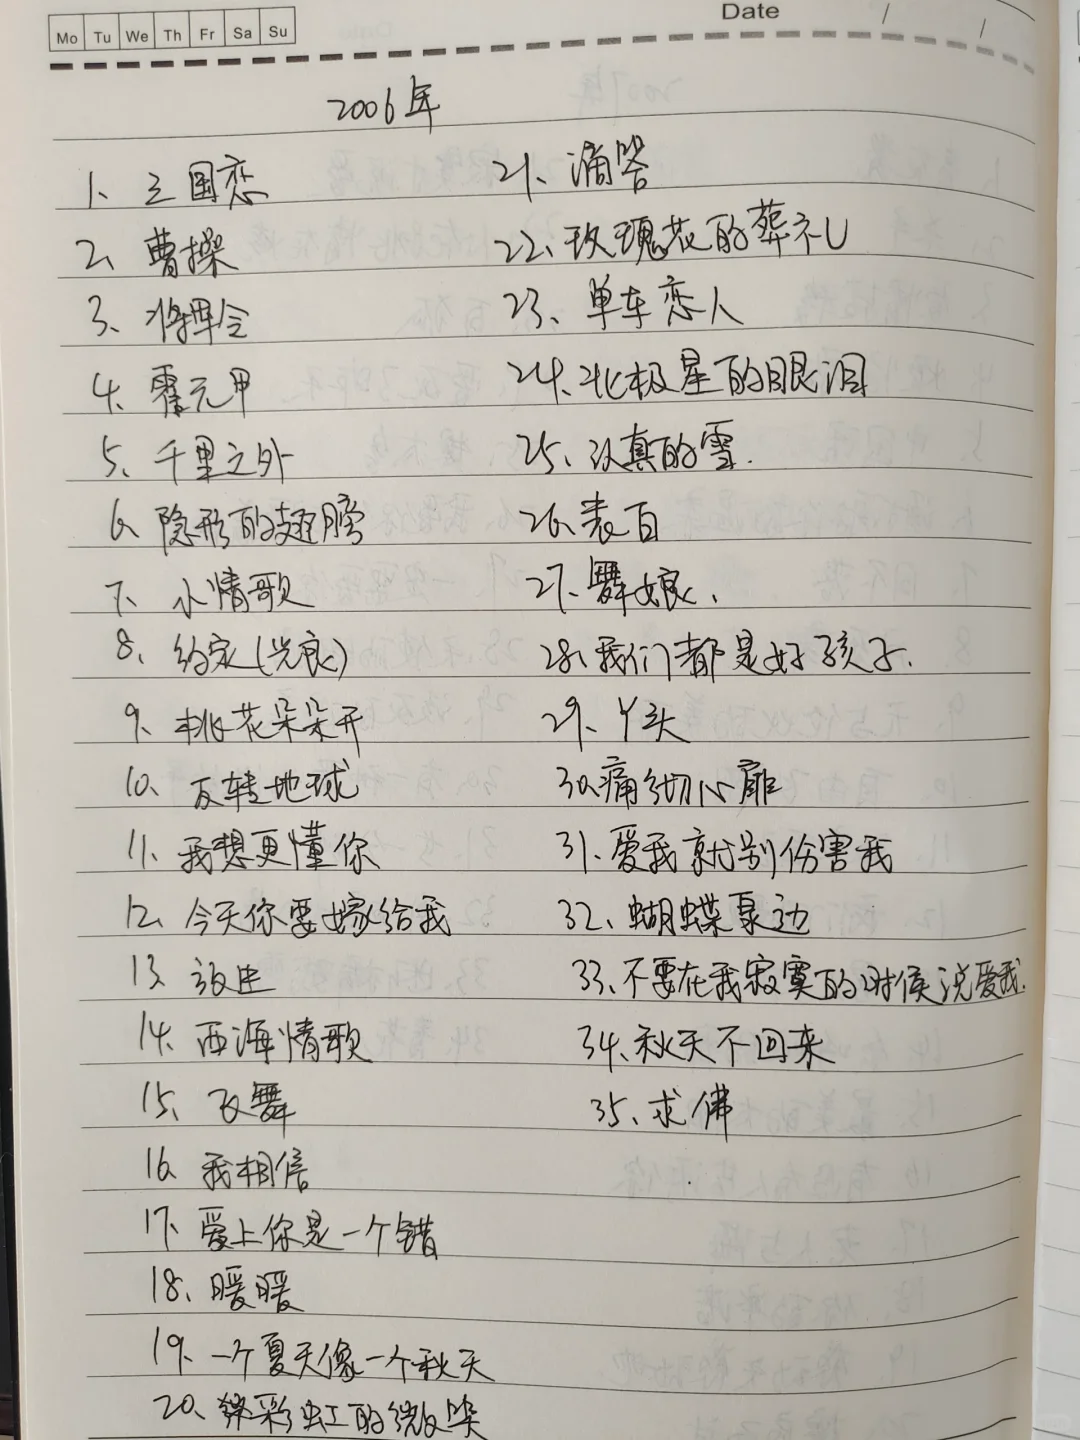 Mo Tu We Th Fr Sa Su
Date / /
2006年
1、三国恋
2、曹操
3、将军令
4、霍元甲
5、千里之外
6、隐形的翅膀
7、小情歌
8、约定(光良)
9、桃花朵朵开
10、反转地球
11、我想更懂你
12、今天你要嫁给我
13、放生
14、西海情歌
15、飞舞
16、我相信
17、爱上你是一个错
18、暖暖
19、一个夏天像一个秋天
20、彩虹的微笑
21、滴答
22、玫瑰花的葬礼
23、单车恋人
24、北极星的眼泪
25、认真的雪.
26、表白
27、舞娘、
28、我们都是好孩子.
29、丫头
30、痛彻心扉
31、爱我就别伤害我
32、蝴蝶泉边
33、不要在我寂寞的时候说爱我.
34、秋天不回来
35、求佛